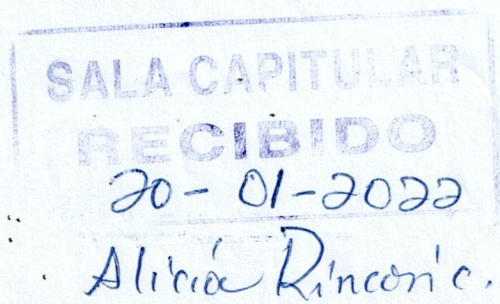 SALA CAPITULAR
RECIBIDO
20-01-2022
Alicia Rincon c.